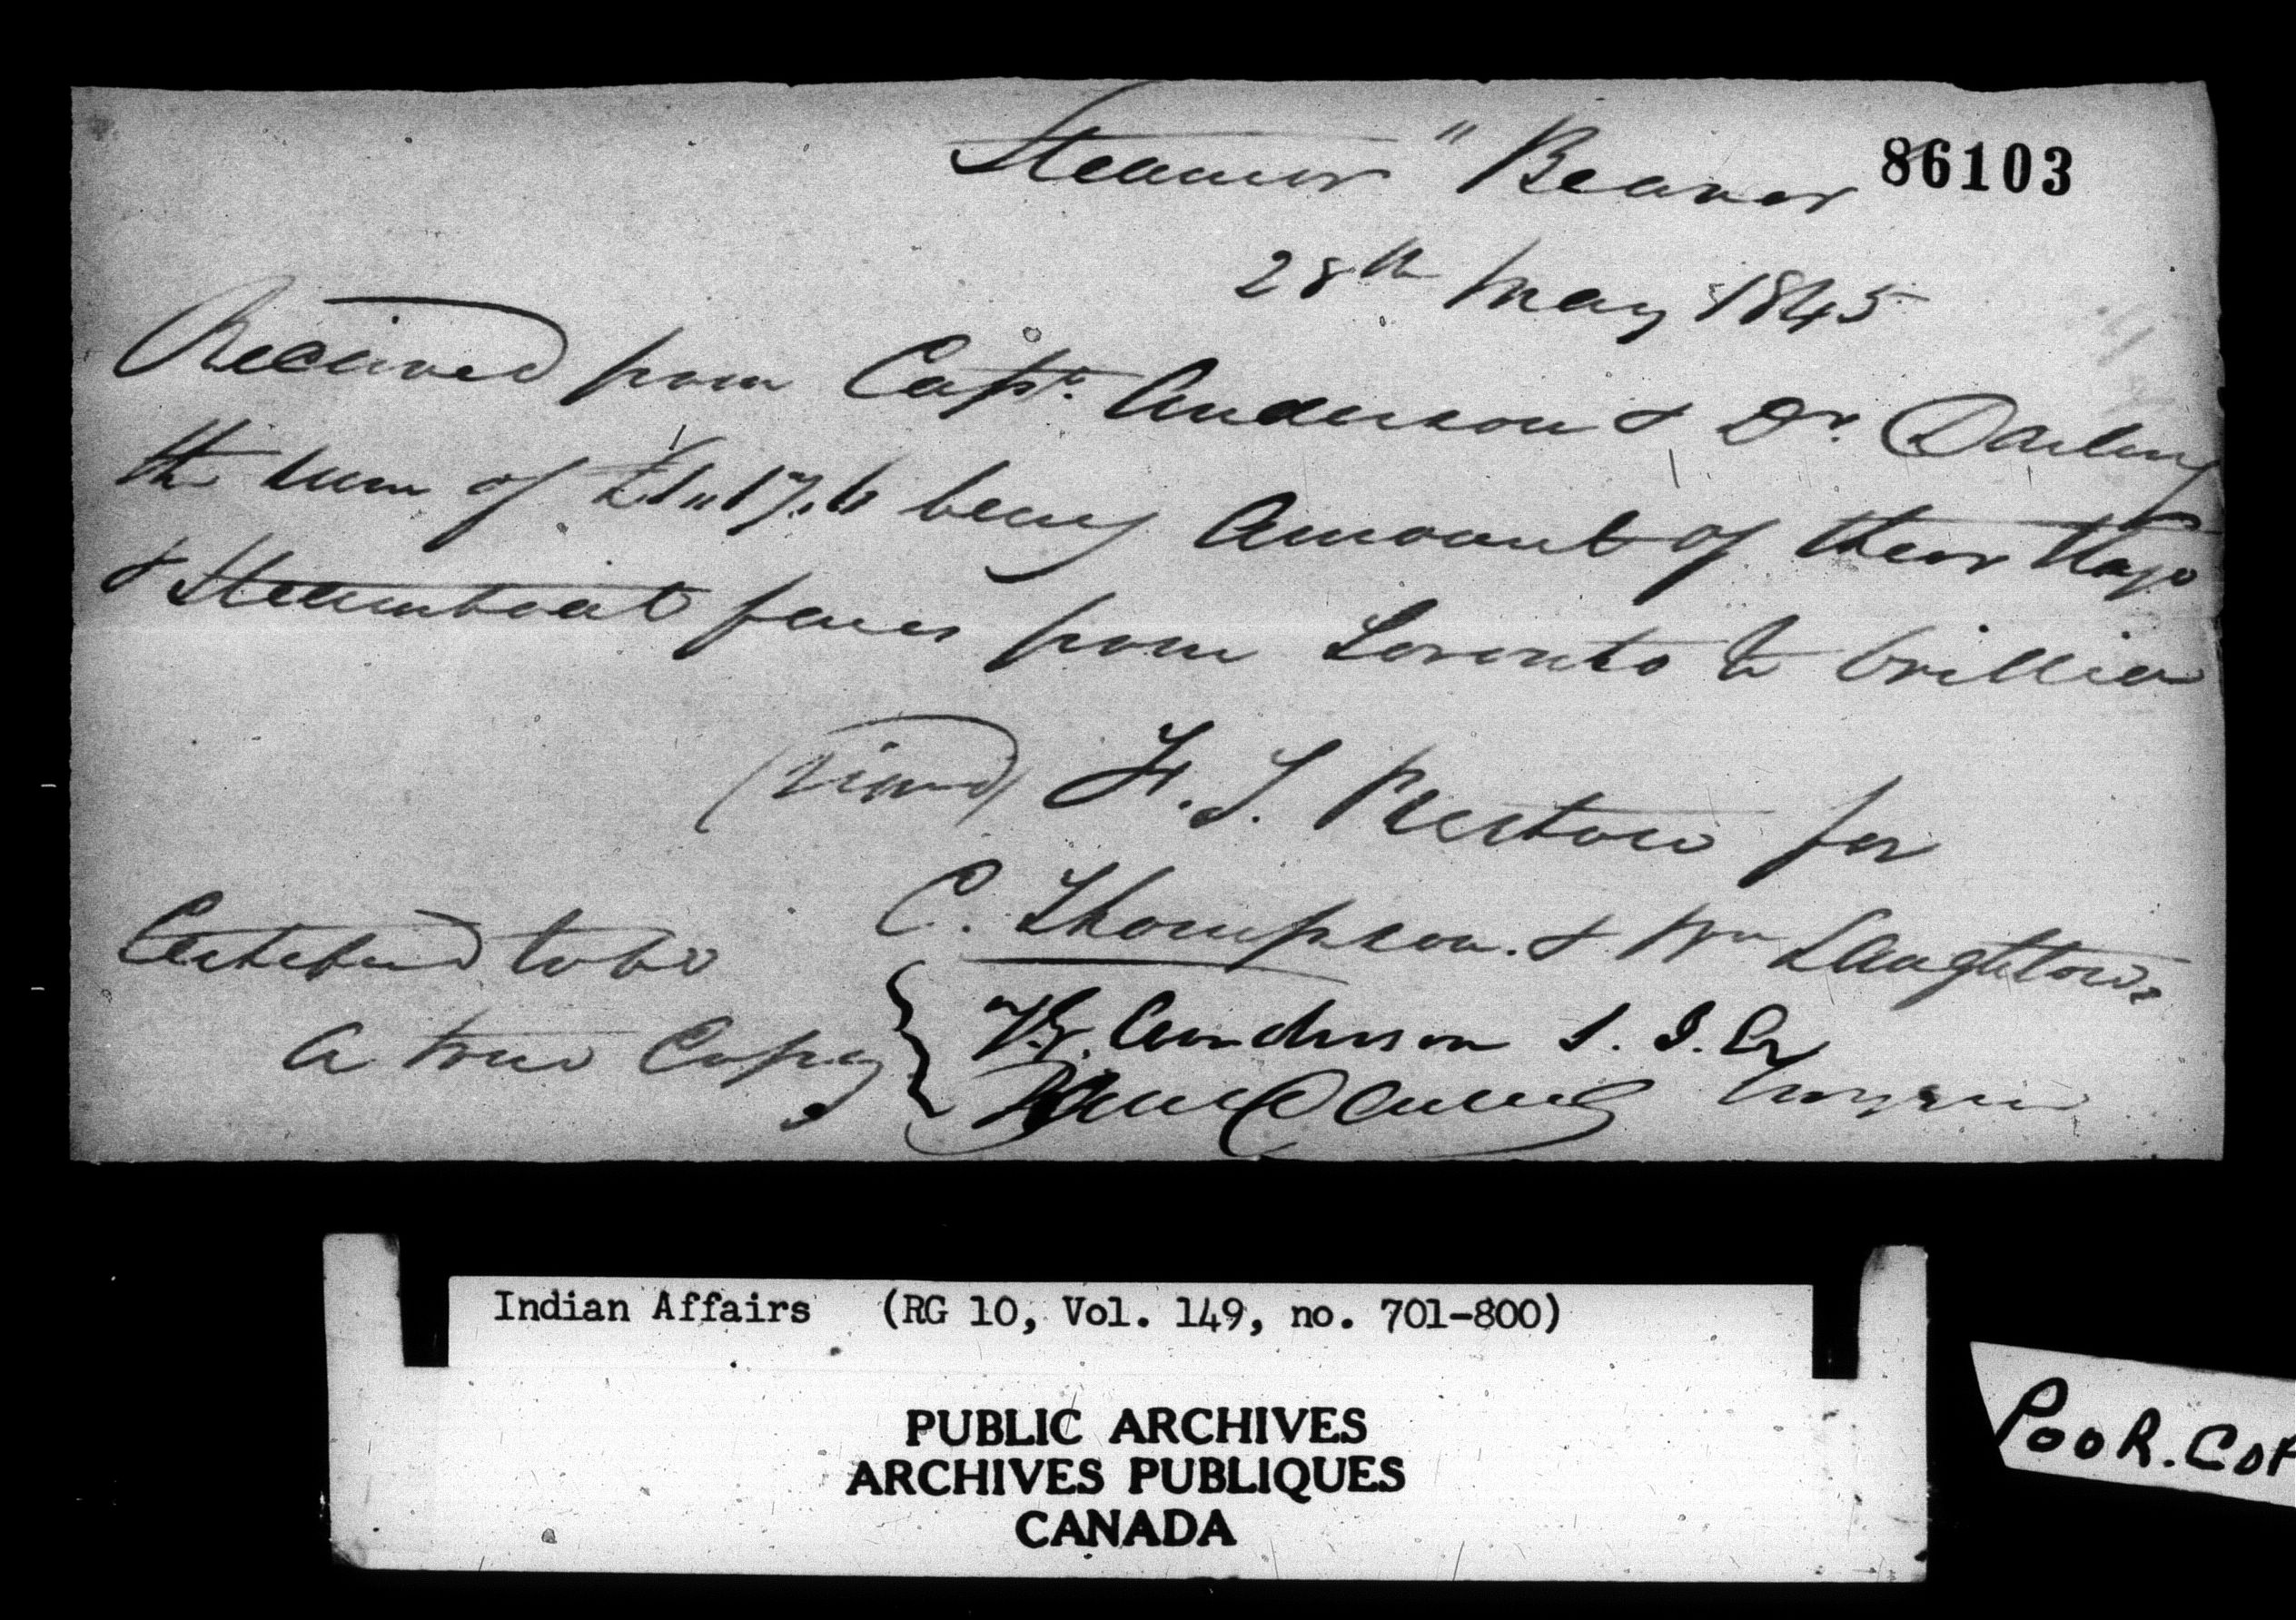 86103
Steamer "Beaver
28th May 1845
Received from Capt. Anderson & Dr. Darling
the sum of £1,,17,6 being Amount of their Stage
& Steamboat fares from Toronto to Orillia
(signed) F. J. Preston for
C. Thompson. & Wm Laughton.
Certified to be
a true Copy
T.G. Anderson S. I. A
Surgeon
Indian Affairs (RG 10, Vol. 149, no. 701-800)
PUBLIC ARCHIVES
ARCHIVES PUBLIQUES
CANADA
POOR. COP